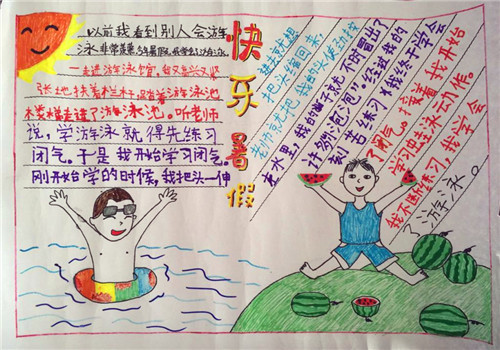 快乐暑假
以前我看到别人会游
泳非常羡慕,今年暑假,我学会了游泳。
一走进游泳馆,我又高兴又紧
张地扶着栏杆,踏着游泳池
楼梯走进了游泳池。听老师
说,学游泳就得先练习
闭气。于是我开始学习闭气。
刚开始学的时候,我把头一伸
进去就想
把头缩回来
老师就把我的头
在水里,我的脑子就不时冒出了
许多“泡泡”。经过我的
刻苦练习,我终于学会
了闭气。接着,我开始
学习蛙泳动作。
我不断练习,我学会
了游泳。